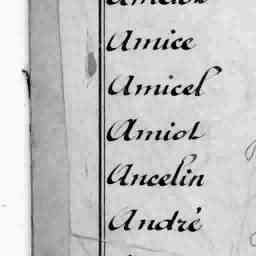 Amice
Amicel
Amiot
Ancelin
André